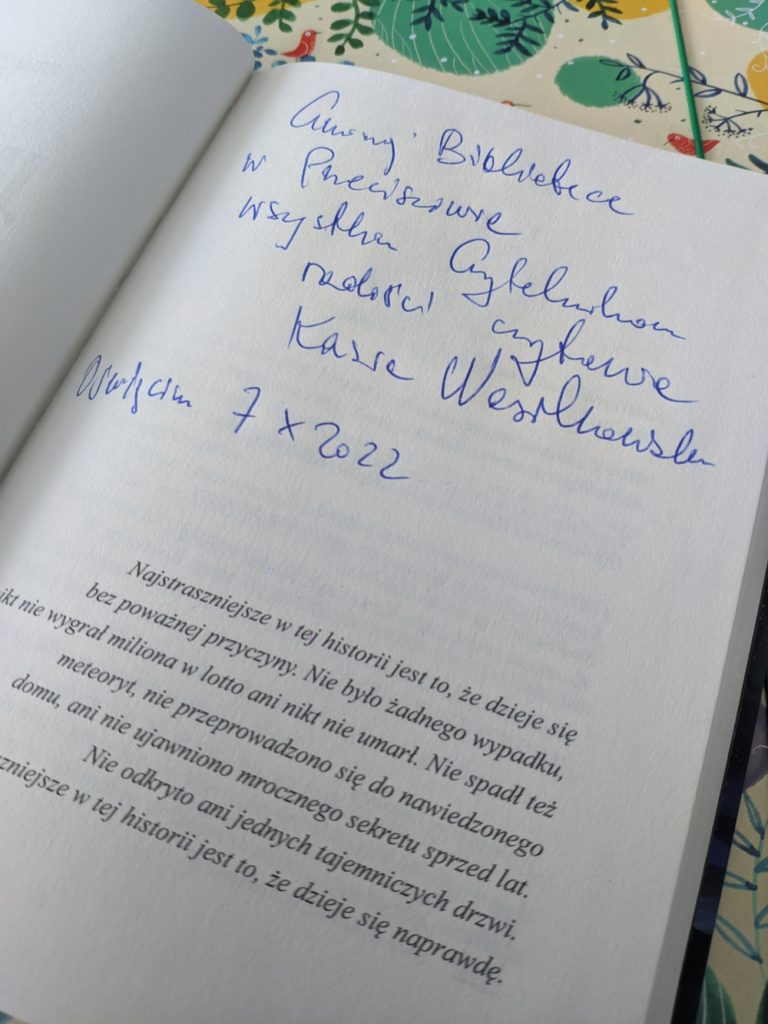 Gminnej Bibliotece
w Przeciszowie
wszystkim Czytelnikom
radości czytania
Kasia Wasilkowska
Oświęcim 7 X 2022
Najstraszniejsze w tej historii jest to, że dzieje się
bez poważnej przyczyny. Nie było żadnego wypadku,
nikt nie wygrał miliona w lotto ani nikt nie umarł. Nie spadł też
meteoryt, nie przeprowadzono się do nawiedzonego
domu, ani nie ujawniono mrocznego sekretu sprzed lat.
Nie odkryto ani jednych tajemniczych drzwi.
w tej historii jest to, że dzieje się naprawdę.